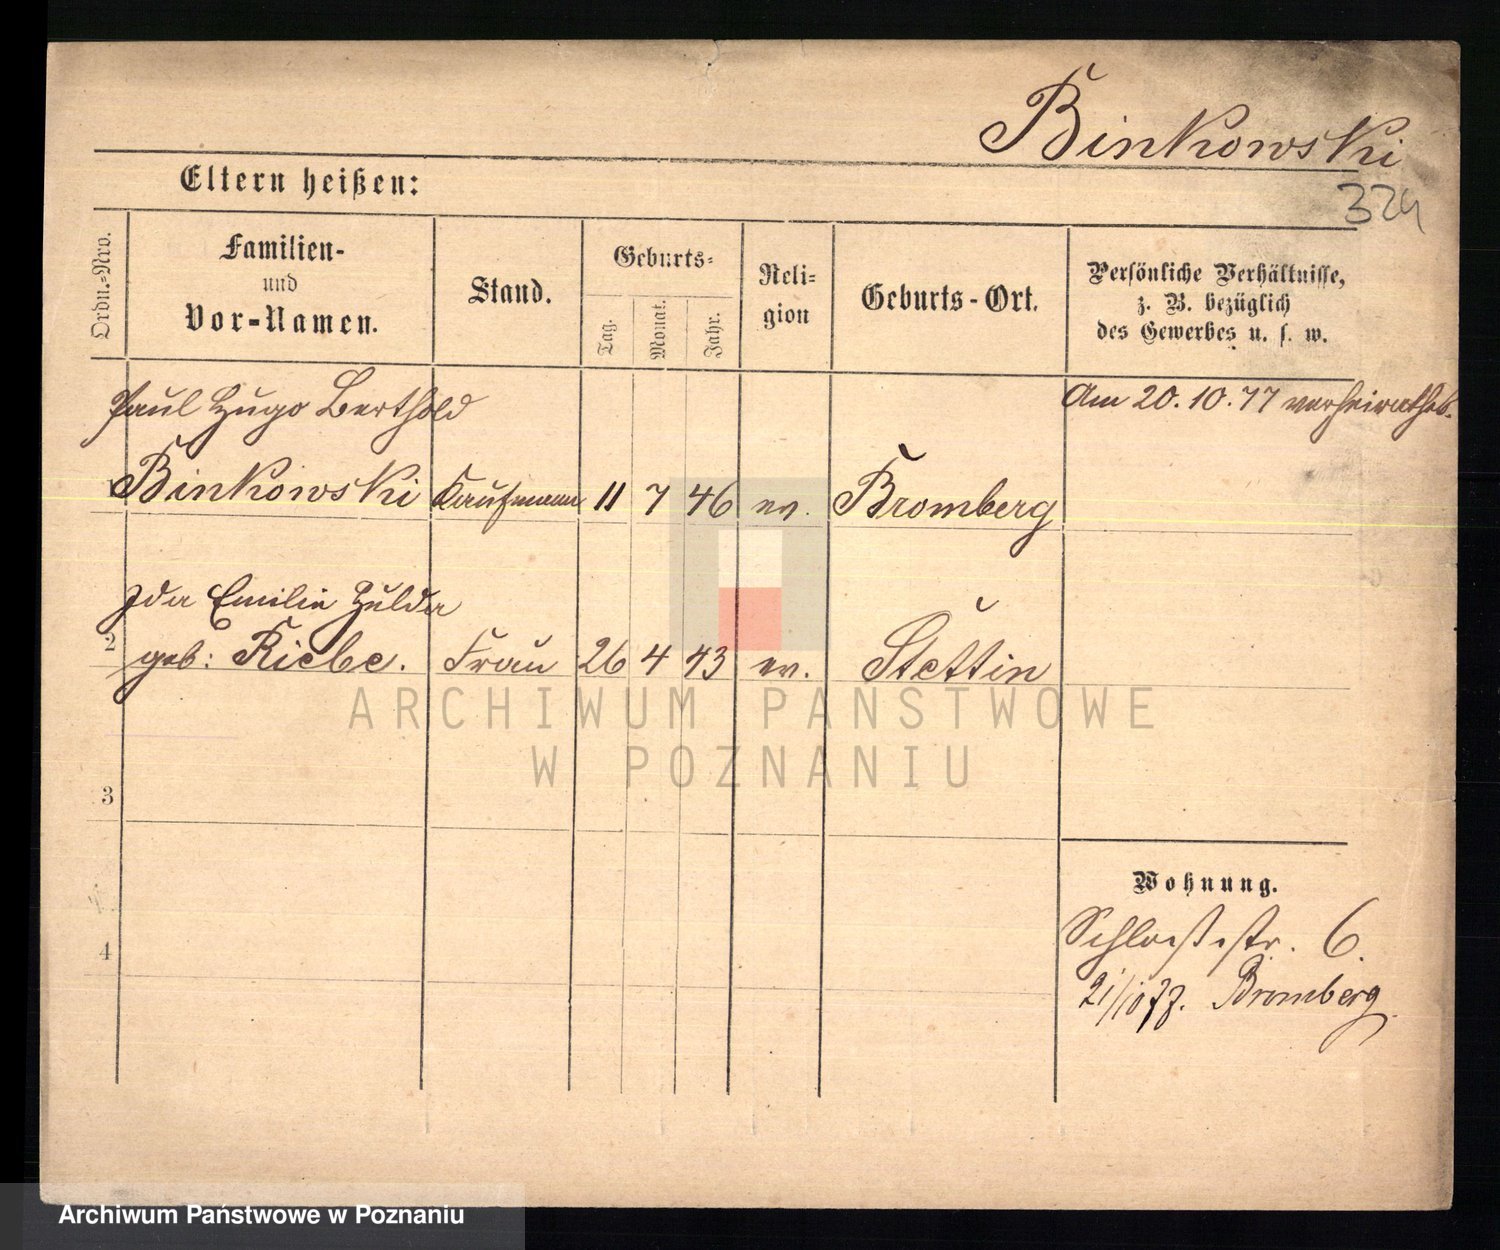 Binkowski
Eltern heißen:
324
Ordn.=Nro.
Familien-
und
Vor=Namen.
Stand.
Geburts=
Tag.
Monat.
Jahr.
Reli=
gion
Geburts-Ort.
Persönliche Verhältnisse,
z. B. bezüglich
des Gewerbes u. s. w.
Paul Hugo Berthold
Am 20.10.77 verheirathet.
1 Binkowski Kaufmann 11 7 46 ev. Bromberg
Ida Emilie Hulda
2 geb: Riebe. Frau 26 4 43 ev. Stettin
ARCHIWUM PAŃSTWOWE
W POZNANIU
3
Wohnung.
Schloßstr. 6.
4
21/10 77. Bromberg.
Archiwum Państwowe w Poznaniu